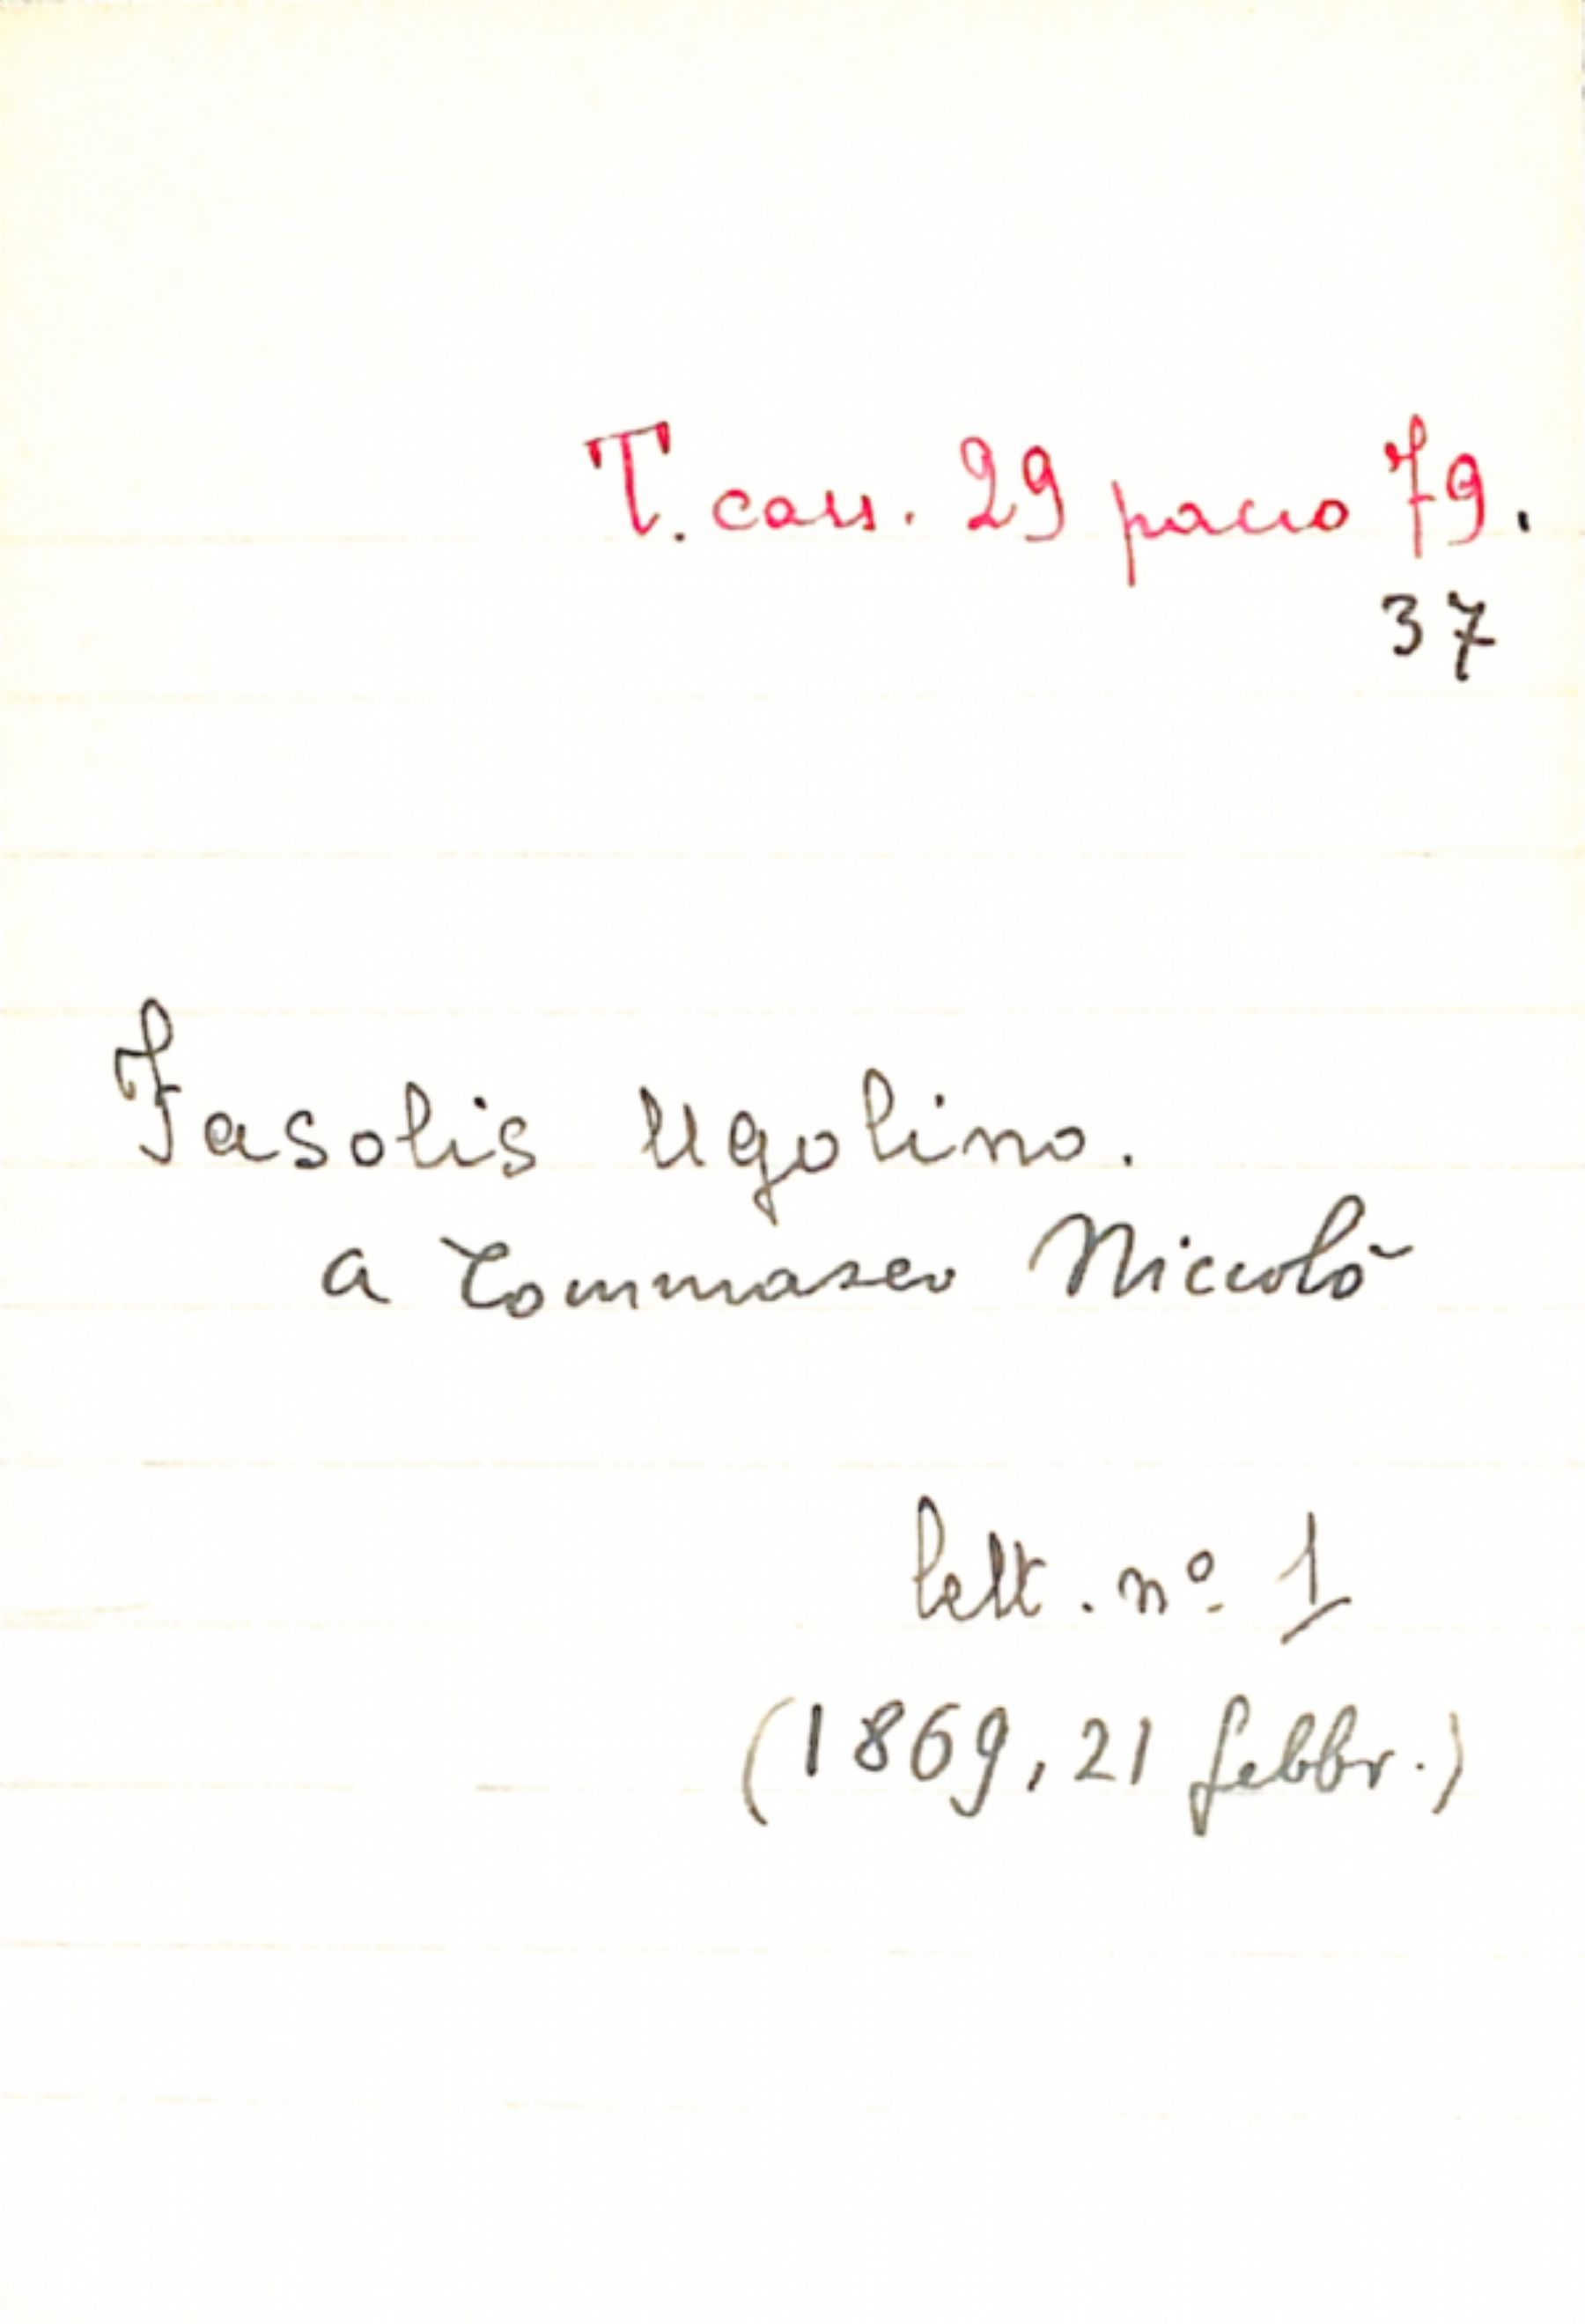 T. cass. 29 pacco 79.
37
Fasolis Ugolino.
a Tommaseo Niccolò
lett. nº 1
(1869, 21 febbr.)